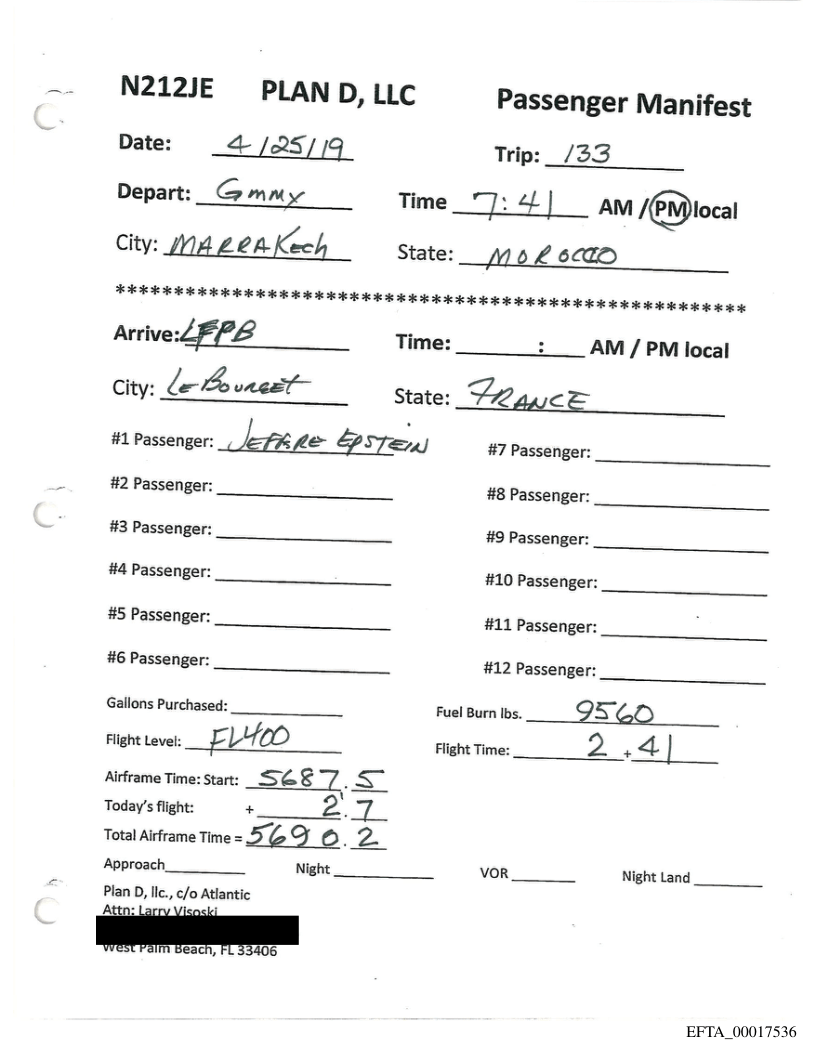 N212JE PLAN D, LLC Passenger Manifest
Date: 4/25/19 Trip: 133
Depart: GMMX Time 7:41 AM / PM local
City: MARRAKech State: MOROCCO
******************************************************
Arrive: LFPB Time: : AM / PM local
City: Le Bourget State: FRANCE
#1 Passenger: JEFFRE EPSTEIN #7 Passenger:
#2 Passenger: #8 Passenger:
#3 Passenger: #9 Passenger:
#4 Passenger: #10 Passenger:
#5 Passenger: #11 Passenger:
#6 Passenger: #12 Passenger:
Gallons Purchased: Fuel Burn lbs. 9560
Flight Level: FL400 Flight Time: 2 + 41
Airframe Time: Start: 5687.5
Today's flight: + 2.7
Total Airframe Time = 5690.2
Approach Night VOR Night Land
Plan D, llc., c/o Atlantic
Attn: Larry Visoski
West Palm Beach, FL 33406
EFTA_00017536